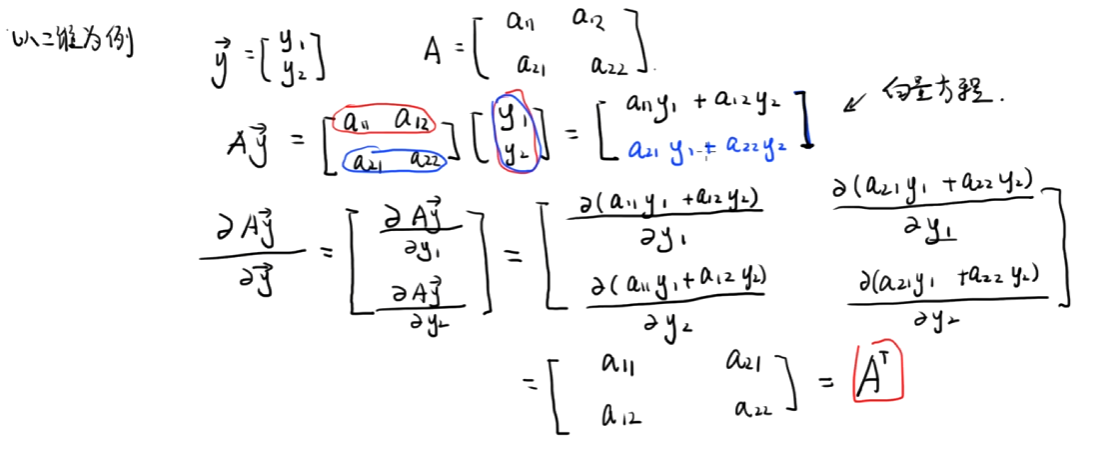 以二维为例 \vec{y} = \begin{bmatrix} y_1 \\ y_2 \end{bmatrix} A = \begin{bmatrix} a_{11} & a_{12} \\ a_{21} & a_{22} \end{bmatrix}.
A\vec{y} = \begin{bmatrix} a_{11} & a_{12} \\ a_{21} & a_{22} \end{bmatrix} \begin{bmatrix} y_1 \\ y_2 \end{bmatrix} = \begin{bmatrix} a_{11} y_1 + a_{12} y_2 \\ a_{21} y_1 + a_{22} y_2 \end{bmatrix} ↙ 向量方程.
\frac{\partial A\vec{y}}{\partial \vec{y}} = \begin{bmatrix} \frac{\partial A\vec{y}}{\partial y_1} \\ \frac{\partial A\vec{y}}{\partial y_2} \end{bmatrix} = \begin{bmatrix} \frac{\partial (a_{11} y_1 + a_{12} y_2)}{\partial y_1} & \frac{\partial (a_{21} y_1 + a_{22} y_2)}{\partial y_1} \\ \frac{\partial (a_{11} y_1 + a_{12} y_2)}{\partial y_2} & \frac{\partial (a_{21} y_1 + a_{22} y_2)}{\partial y_2} \end{bmatrix}
= \begin{bmatrix} a_{11} & a_{21} \\ a_{12} & a_{22} \end{bmatrix} = A^T